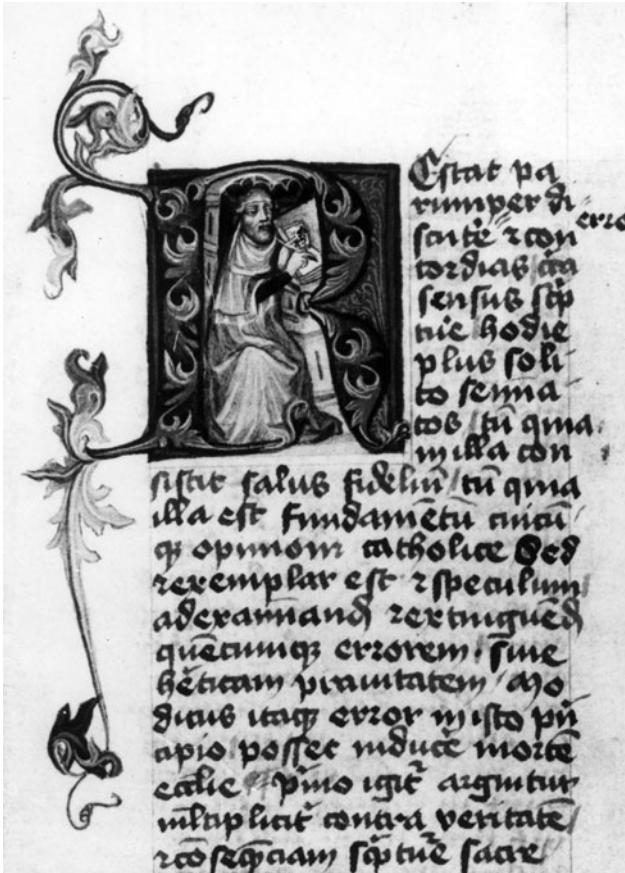 R
Estat pa
rumper di
scut̄e ⁊ con erro
cordias c̄ca
sensus sc̄p
tur̄e hodie
plus soli
to semīa
tos / tū quia
in illa con
sistit salus fideliū / tū quia
illa est fundamētū cuicū
qȝ opinioni catholice Sed
⁊ exemplar est ⁊ speculum
ad examinand̄ ⁊ extinguēd̄
quēcumqȝ errorem · siue
h̄eticam prauitatem / Mo
dicus itaqȝ error in isto pn̄
cipio posset induc̄e mortē
ecclīe // p̄mo igit̄ arguitur
ml̄tiplicit̄ contra veritatē
⁊ cōseqn̄ciam sc̄ptur̄e sacre